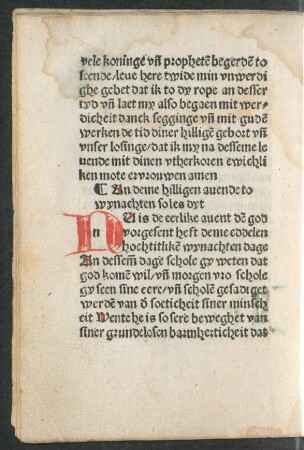 vele koninge vñ prophetẽ begerdẽ to
seende / leue here twide min vnwerdi
ghe gebet dat ik to dy rope an desser
tyd vñ laet my also begaen mit wer⸗
dicheit danck segginge vñ mit gudẽ
werken de tid diner hilligẽ gebort vñ
vnser losinge / dat ik my na desseme le
uende mit dinen vtherkoren ewichli
ken mote ervrouwen amen
¶ An deme hilligen auende to
wynachten so les dyt
NU is de eerlike auent dẽ god
vorgesent heft deme eddelen
hochtitlikẽ wynachten dage
An dessem dage schole gy weten dat
god komẽ wil / vñ morgen vro schole
gy seen sine eere / vñ scholẽ gesadiget
werdẽ van đ soeticheit siner minsch
eit Wente he is so sere beweghet van
siner grundelosen barmherticheit dat